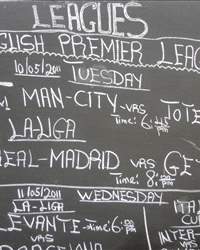 LEAGUES
GLISH PREMIER LEAG
10/05/2011 TUESDAY
MAN-CITY-VRS TOTE
Time: 6:45 pm
LA-LIGA
REAL-MADRID VRS GE
Time: 8:00 pm
11/05/2011 WEDNESDAY
LA-LIGA
LEVANTE-Time 6:00 pm
VRS
ITA
CU
INTER-
VRS